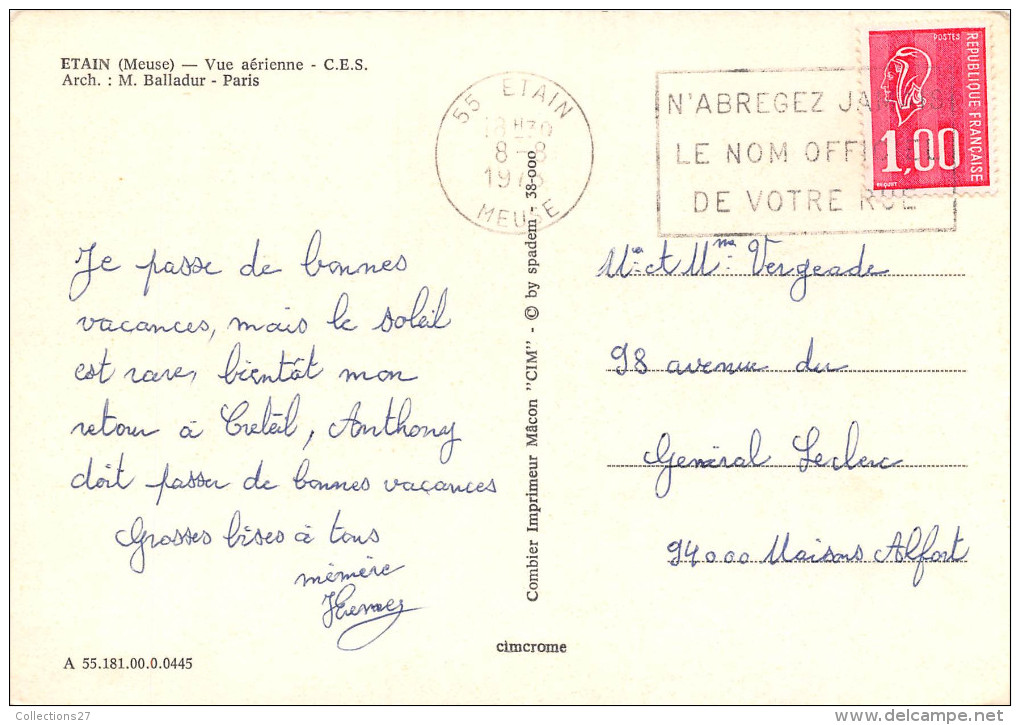 ETAIN (Meuse) — Vue aérienne - C.E.S.
Arch. : M. Balladur - Paris
55 ETAIN
18H30
8-8
MEUSE
N'ABREGEZ
LE NOM
DE VOTRE RUE
POSTES
REPUBLIQUE FRANÇAISE
1,00
Je passe de bonnes
vacances, mais le soleil
est rare, bientôt mon
retour à Créteil, Anthony
doit passer de bonnes vacances
Grosses bises à tous
mémère
Combier Imprimeur Mâcon "CIM" - © by spadem - 38-000
Mr et Mme Vergeade
98 avenue du
Général Leclerc
94000 Maisons Alfort
cimcrome
A 55.181.00.0.0445
Collections27
delcampe.net